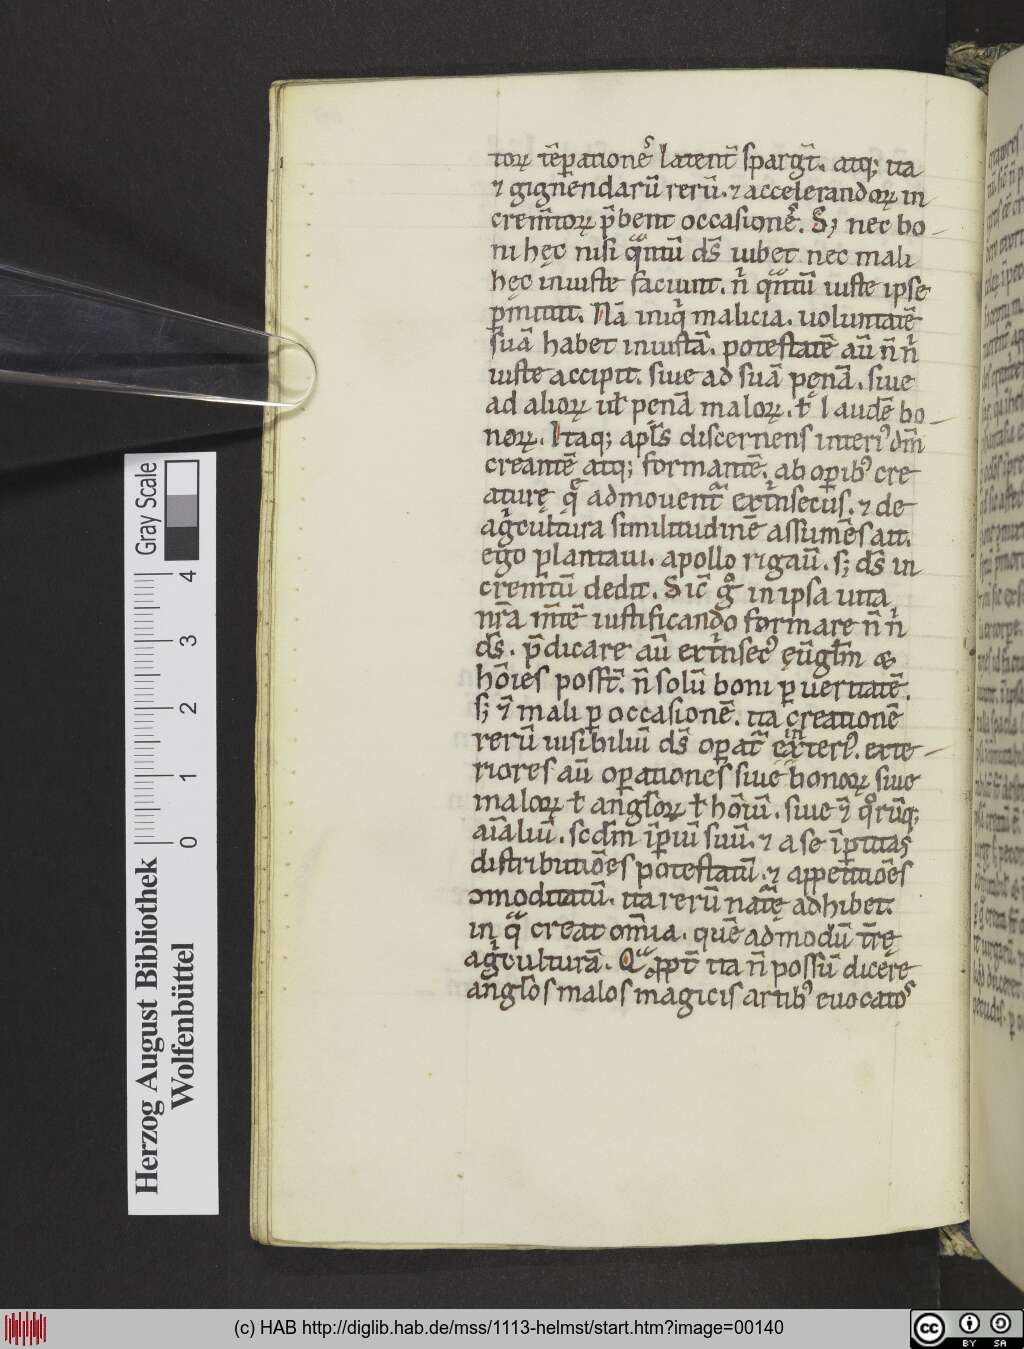 torꝝ tēꝑationēˢ latent̄ spargt̄. atq; ita
⁊ gignendarū rerū. ⁊ accelerandorꝝ in
crem̄torꝝ p̄bent occasionēˢ. S; nec bo
ni hęc nisi qᵃntū ds̄ iubet nec mali
hęc iniuste faciunt. n̄ qᵃntū iuste ipse
ꝑmittit. Nā iniqͥ malicia. uoluntatē
suā habet iniustā. potestatē aū n̄ nͥ
iuste accipit. siue ad suā penā. siue
ad aliorꝝ ut penā malorꝝ. ł laudē bo
norꝝ. Itaq; apl̄s discernens interiꝰ dm̄
creantē atq; formantē. ab oꝑibꝰ cre
aturę q̄ admouentᵃ extͥnsecus. ⁊ de
agͥcultura similitudinē assumēs ait.
ego plantaui. apollo rigaū. s; ds̄ in
crem̄tū dedit. Sic̄ gͦ in ipsa uita
nr̄a m̄tē iustificando formare n̄ nͥ
ds̄. p̄dicare aū extͥnsecꝰ eūgl̄m &
hōies posst̄. n̄ solū boni ꝑ ueritatē.
s; ⁊̄ mali ꝑ occasionē. ita creationē
rerū uisibiliū ds̄ oꝑat̄ interiꝰ. exte
riores aū oꝑationes siue bonorꝝ siue
malorꝝ ł angl̄orꝝ ł hōiū. siue ⁊̄ qͦrūq;
aīaliū. scdm̄ īꝑiū suū. ⁊ a se īꝑtitas
distributiōes potestatū. ⁊ appetitiōes
ꝯmoditatū. ita rerū natᵃę adhibet
in qᵃ creat om̄ia. quē admodū tr̄ę
agͥculturā. Qᵃ ꝓpt̄ ita n̄ possū dicere
angl̄os malos magicis artibꝰ euocatoˢ
Gray Scale
4
3
2
1
0
Herzog August Bibliothek
Wolfenbüttel
(c) HAB http://diglib.hab.de/mss/1113-helmst/start.htm?image=00140
cc
BY SA